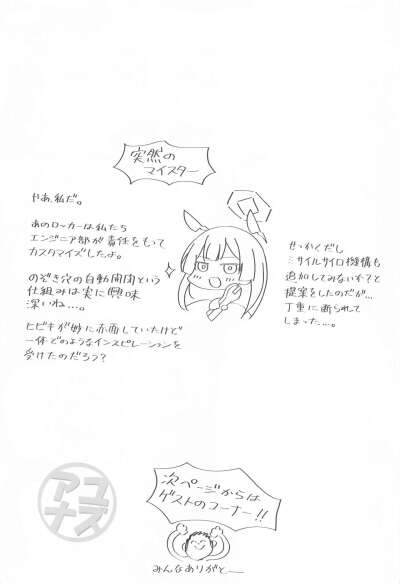 突然の
マイスター
やあ、私だ。
あのロッカーは私たち
エンジニア部が責任をもって
カスタマイズしたよ。
のぞき穴の自動開閉という
仕組みは実に興味
深いね…。
ヒビキが妙に赤面していたけど
一体どのようなインスピレーションを
受けたのだろう?
せっかくだし
ミサイルサイロ機構も
追加してみないか?と
提案をしたのだが…
丁重に断られて
しまった…。
次ページからは
ゲストのコーナー!!
みんなありがとー
アユ
ナズ